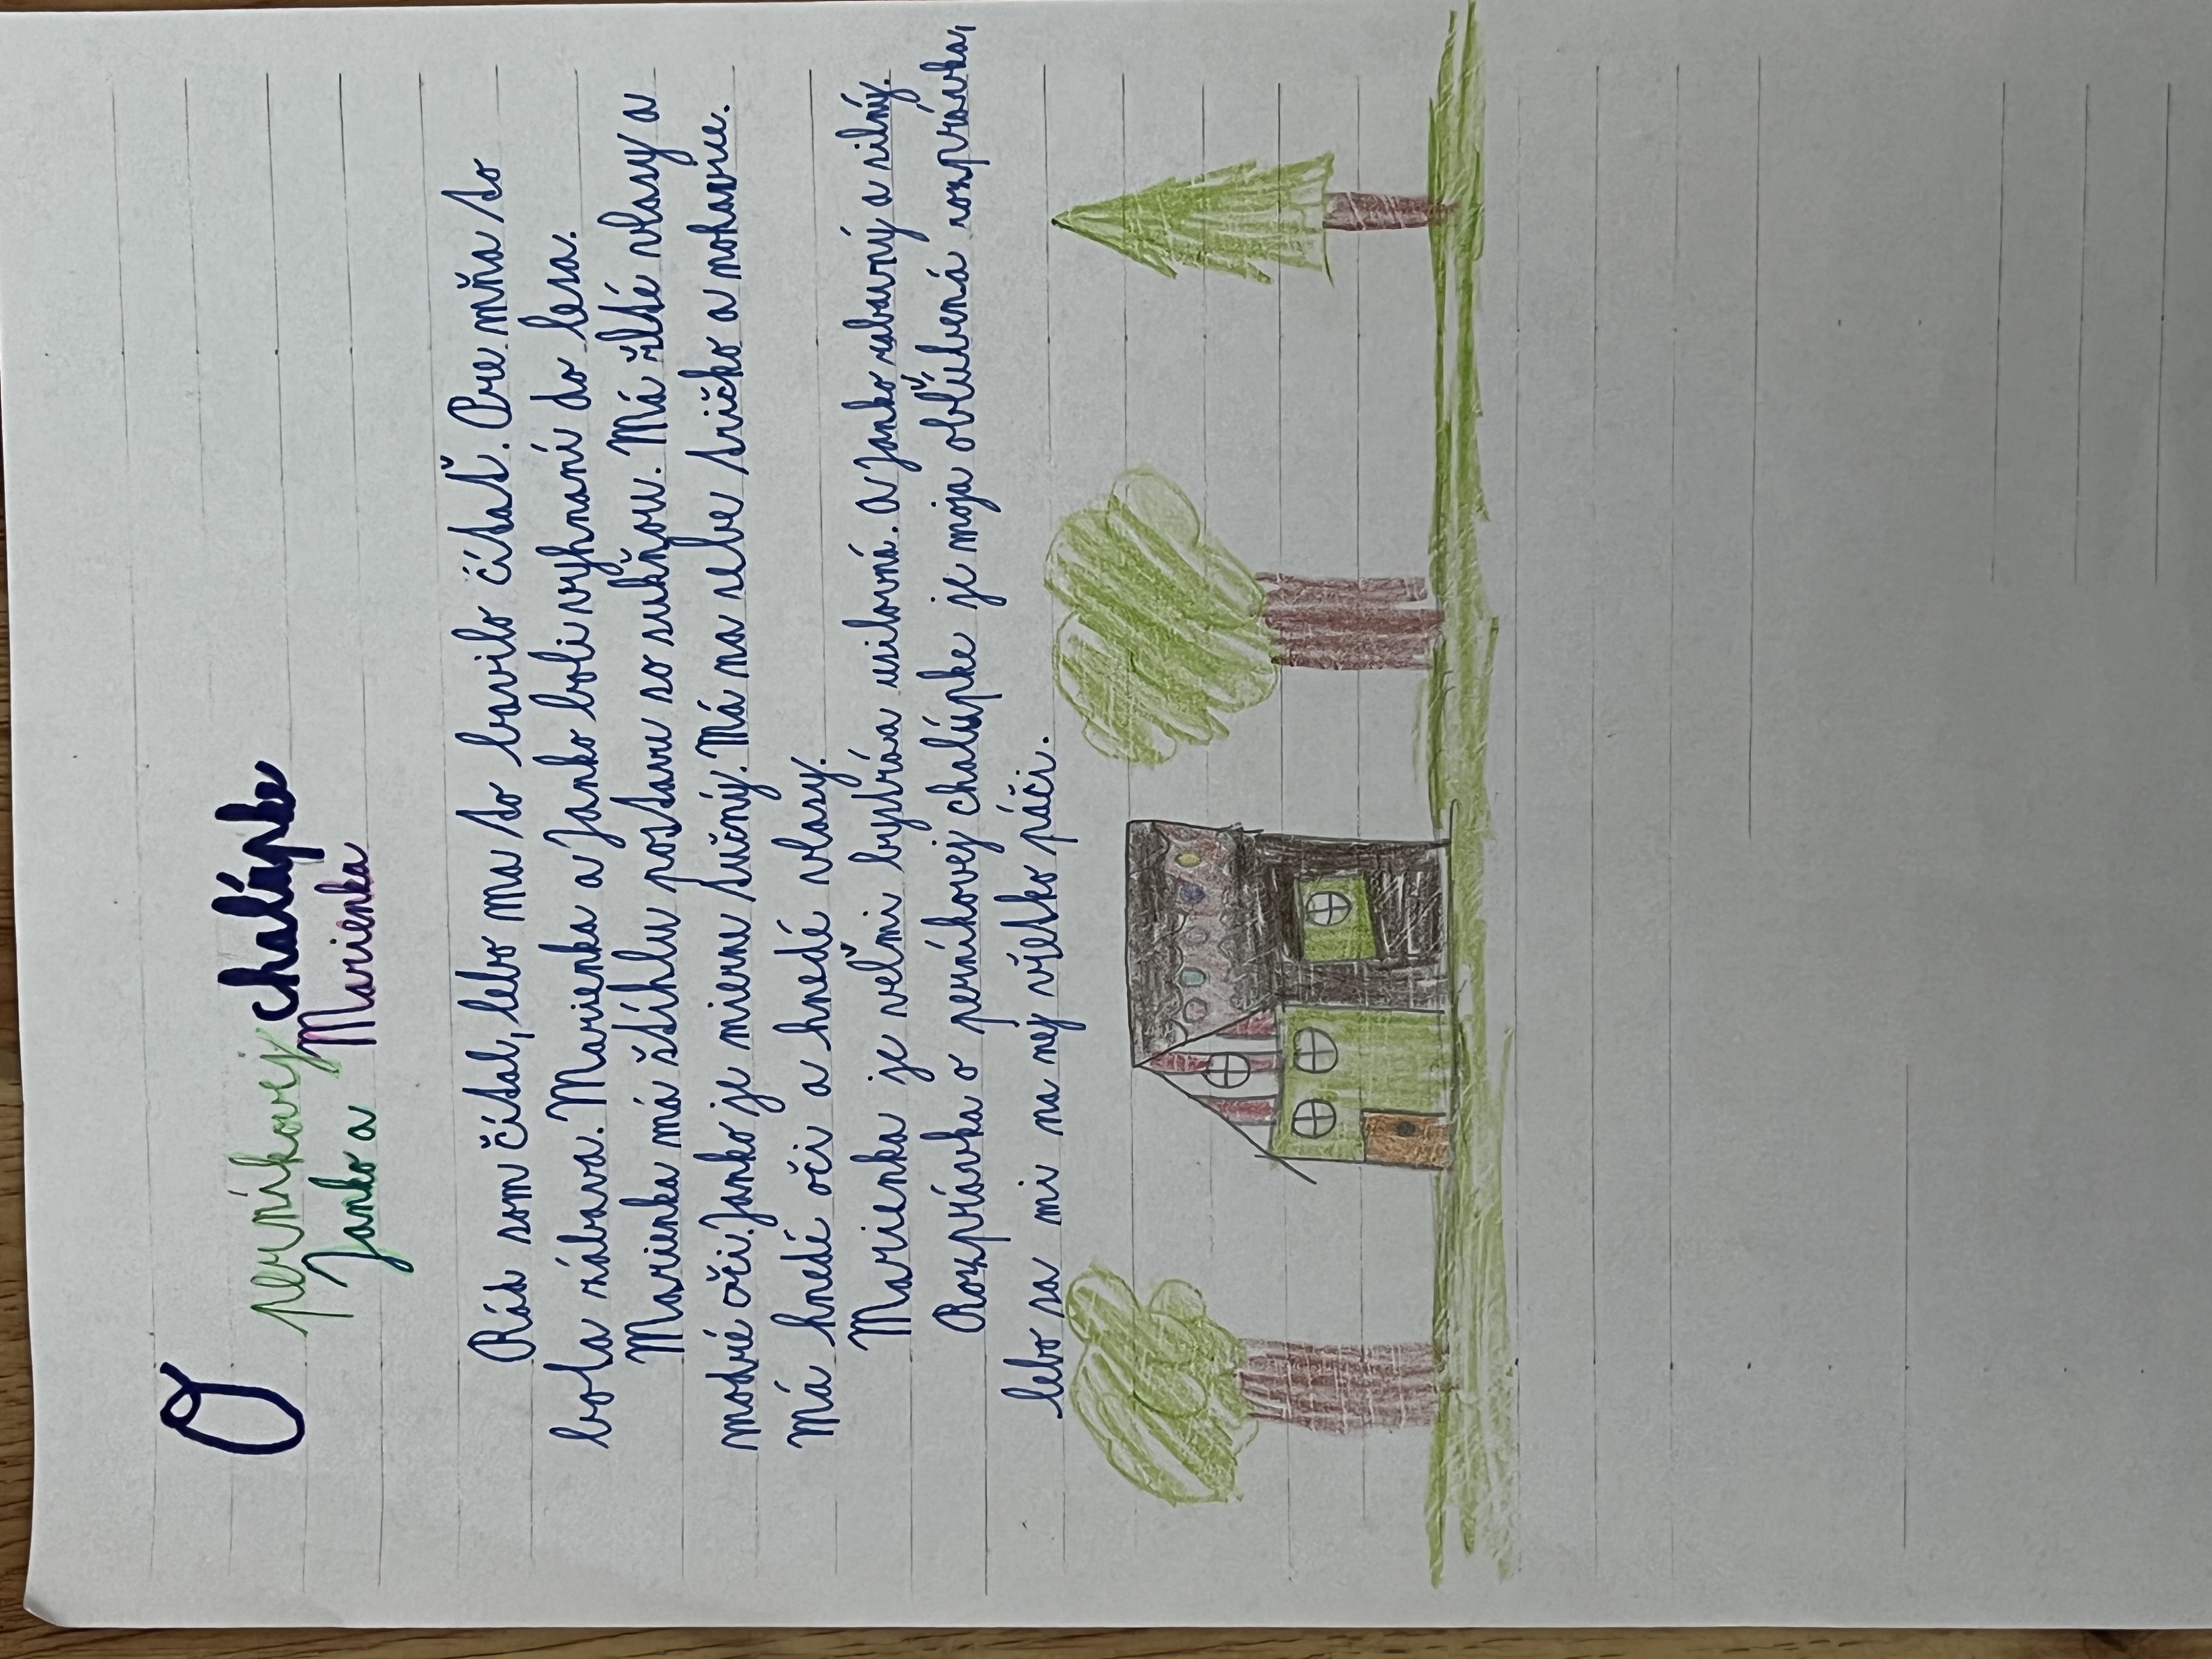 O
perníkovej chalúpke
Janko a Marienka
Rád som čítal, lebo ma to bavilo čítať. Pre mňa to
bola zábava. Marienka a Janko boli vyhnaní do lesa.
Marienka má štíhlu postavu so sukňou. Má žlté vlasy a
modré oči. Janko je mierne tučný. Má na sebe tričko a nohavice.
Má hnedé oči a hnedé vlasy.
Marienka je veľmi bystrá a usilovná. A Janko zabavný a silný.
Rozprávka o perníkovej chalúpke je moja obľúbená rozprávka,
lebo sa mi na nej všetko páči.